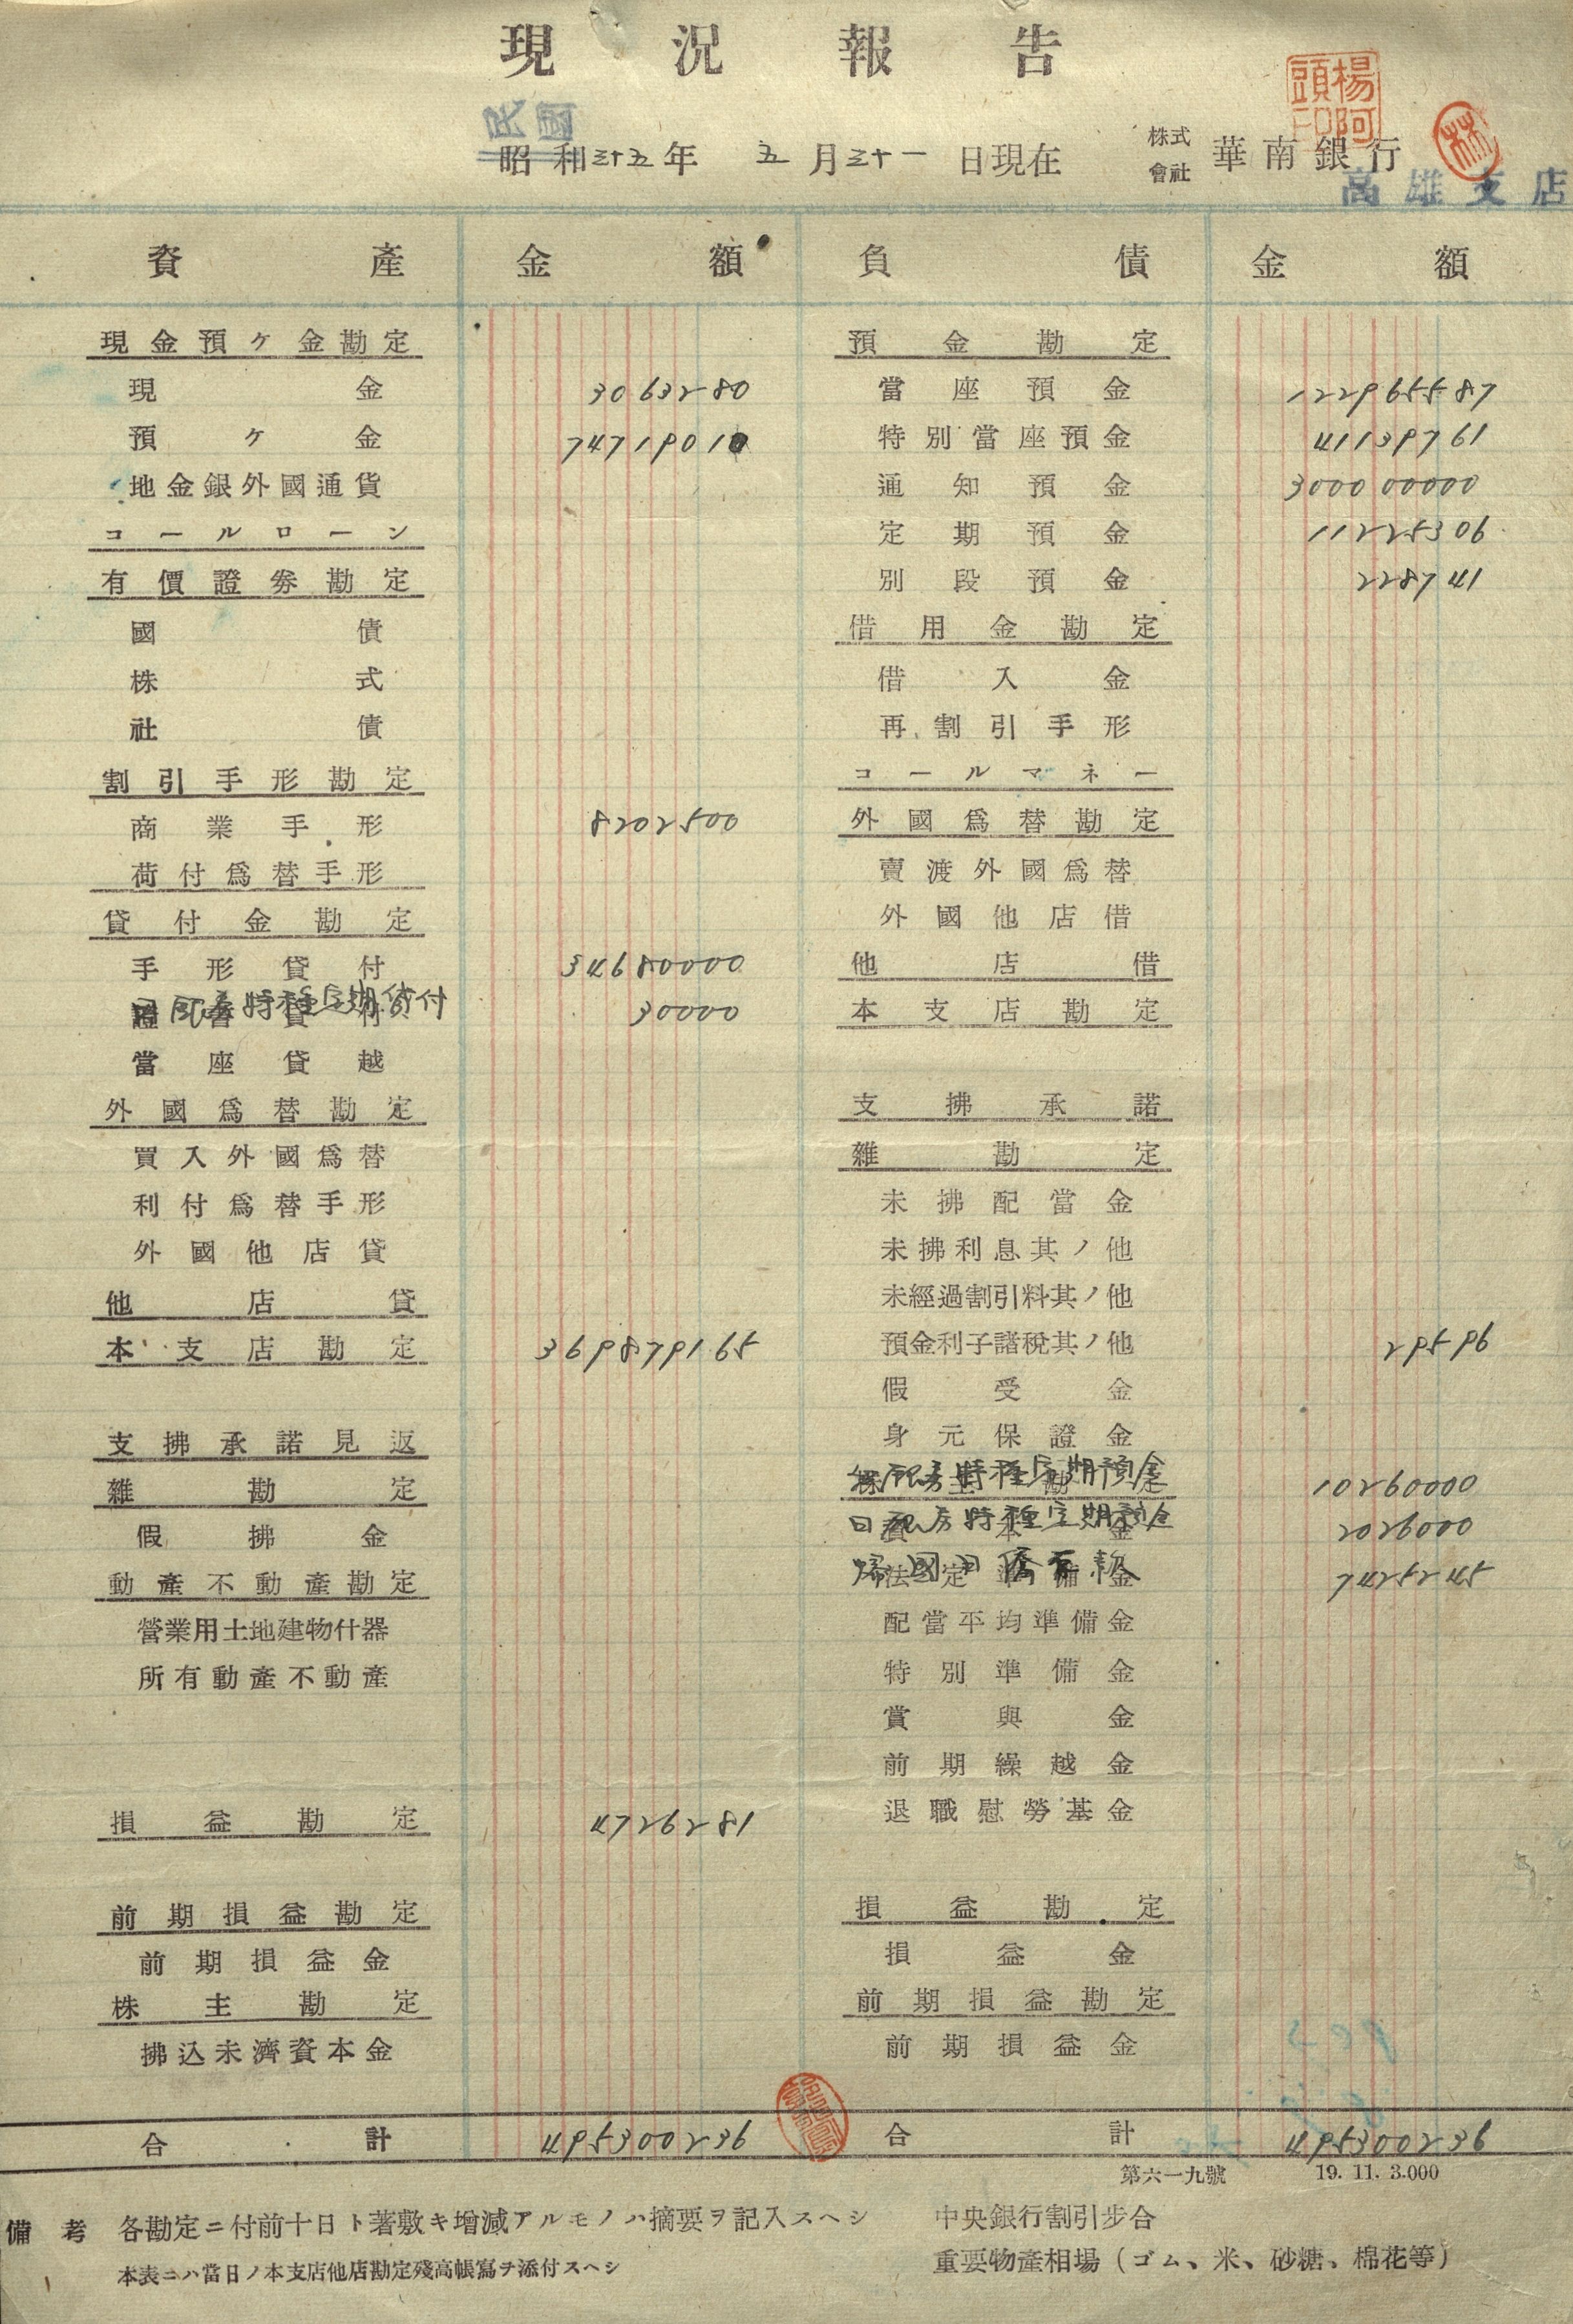 現況報告
民國
昭和三十五年 五月三十一日現在
株式會社 華南銀行
高雄支店
楊阿頭印
林
資產 金額
現金預ケ金勘定
現金 3063280
預ケ金 74719010
地金銀外國通貨
コールローン
有價證券勘定
國債
株式
社債
割引手形勘定
商業手形 8202500
荷付爲替手形
貸付金勘定
手形貸付 34680000
證書貸付
銀券特種定期貸付 30000
當座貸越
外國爲替勘定
買入外國爲替
利付爲替手形
外國他店貸
他店貸
本支店勘定 369879165
支拂承諾見返
雜勘定
假拂金
動產不動產勘定
營業用土地建物什器
所有動產不動產
損益勘定 4726281
前期損益勘定
前期損益金
株主勘定
拂込未濟資本金
合計 495300236
負債 金額
預金勘定
當座預金 122965587
特別當座預金 41139761
通知預金 300000000
定期預金 11225306
別段預金 228741
借用金勘定
借入金
再割引手形
コールマネー
外國爲替勘定
賣渡外國爲替
外國他店借
他店借
本支店勘定
支拂承諾
雜勘定
未拂配當金
未拂利息其ノ他
未經過割引料其ノ他
預金利子諸稅其ノ他 29596
假受金
身元保證金
株主勘定
銀券特種定期預金 10260000
資本金
日銀券特種定期預金 2026000
法定準備金
歸國日僑存款 7425245
配當平均準備金
特別準備金
賞與金
前期繰越金
退職慰勞基金
損益勘定
損益金
前期損益勘定
前期損益金
合計 495300236
第六一九號 19. 11. 3.000
備考 各勘定ニ付前十日ト著敷キ增減アルモノハ摘要ヲ記入スヘシ
本表ニハ當日ノ本支店他店勘定殘高帳寫ヲ添付スヘシ
中央銀行割引步合
重要物產相場（ゴム、米、砂糖、棉花等）